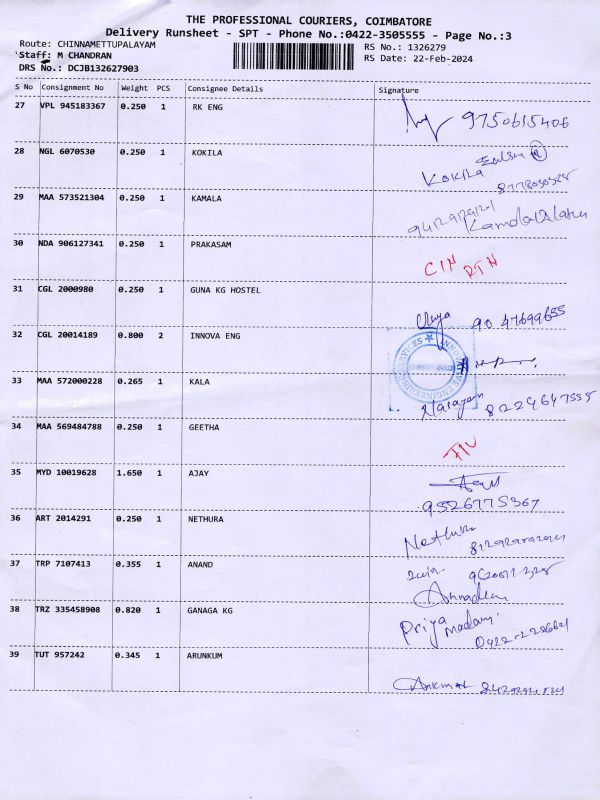 THE PROFESSIONAL COURIERS, COIMBATORE
Delivery Runsheet - SPT - Phone No.:0422-3505555 - Page No.:3
Route: CHINNAMETTUPALAYAM RS No.: 1326279
Staff: M CHANDRAN RS Date: 22-Feb-2024
DRS No.: DCJB132627903
S No Consignment No Weight PCS Consignee Details Signature
27 VPL 945183367 0.250 1 RK ENG 9750615406
28 NGL 6070530 0.250 1 KOKILA Kokila
29 MAA 573521304 0.250 1 KAMALA
30 NDA 906127341 0.250 1 PRAKASAM CIN RTN
31 CGL 2000980 0.250 1 GUNA KG HOSTEL 90 47699655
32 CGL 20014189 0.800 2 INNOVA ENG
33 MAA 572000228 0.265 1 KALA Narayan 8224647555
34 MAA 569484788 0.250 1 GEETHA
35 MYD 10019628 1.650 1 AJAY
9526775367
36 ART 2014291 0.250 1 NETHURA Nethura
37 TRP 7107413 0.355 1 ANAND
38 TRZ 335458908 0.820 1 GANAGA KG Priya
39 TUT 957242 0.345 1 ARUNKUM